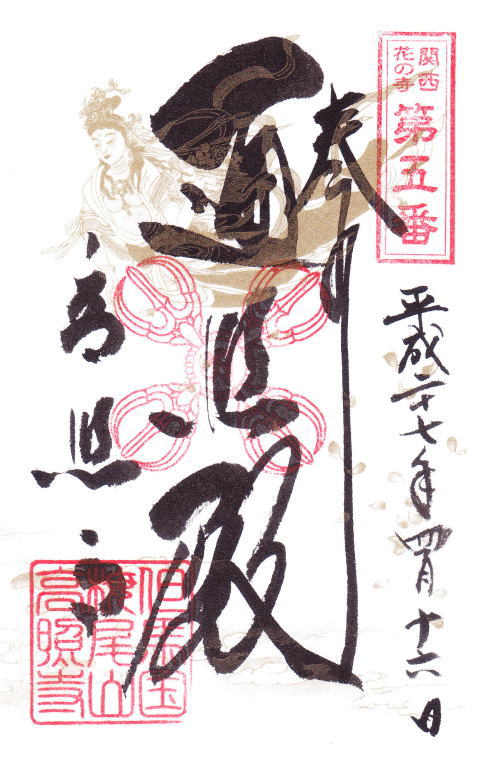 関西
花の寺
第五番
奉拝
平成二十七年四月十六日
遍照殿
高照寺
但馬国
尾山
高照寺